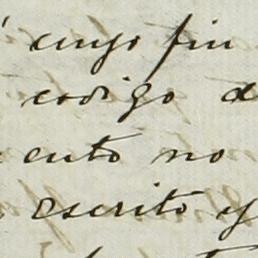 cuyo fin
codigo d
ento no
escrito y